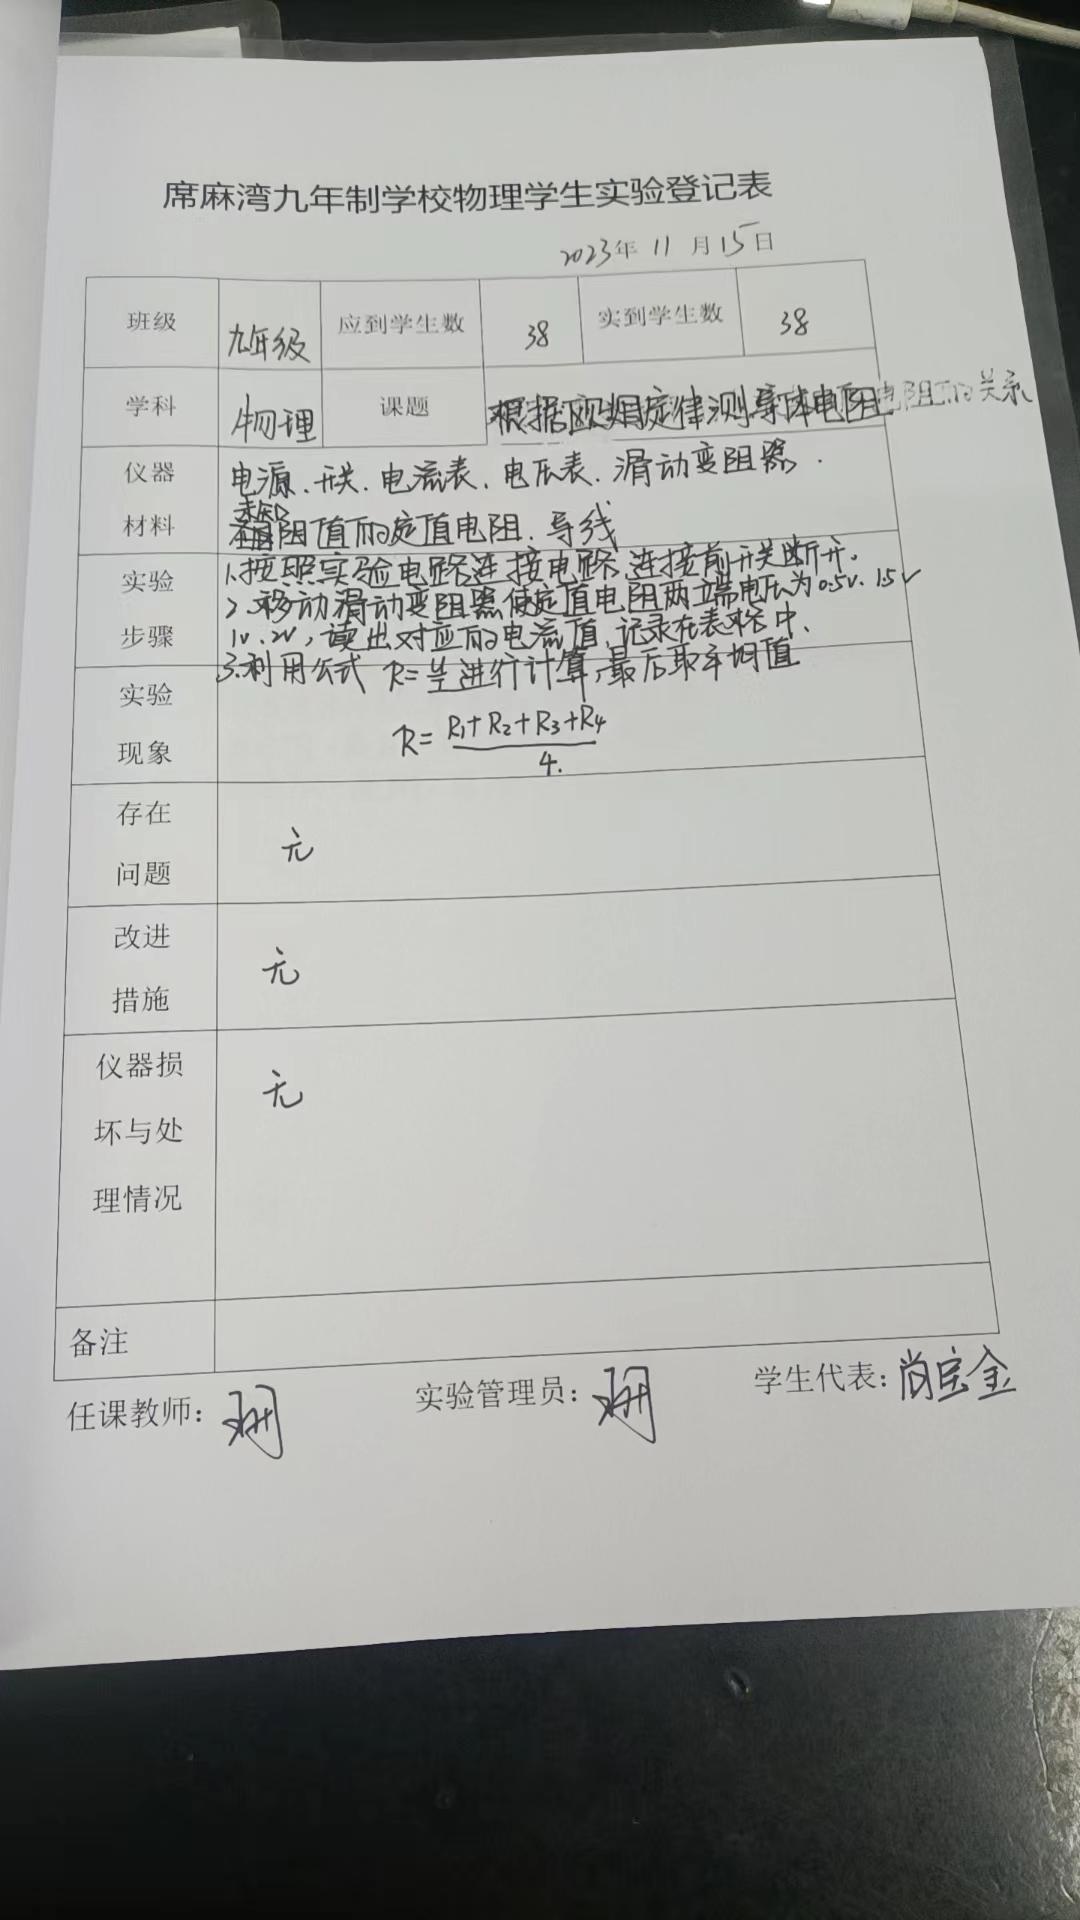 席麻湾九年制学校物理学生实验登记表
2023年 11 月 15 日
班级 九年级 应到学生数 38 实到学生数 38
学科 物理 课题 根据欧姆定律测导体电阻 电阻的关系
仪器 电源、开关、电流表、电压表、滑动变阻器、
未知
材料 阻值的定值电阻、导线
实验 1.按照实验电路连接电路,连接前开关断开。
2.移动滑动变阻器使定值电阻两端电压为0.5V、1.5V
步骤 1V、2V,读出对应的电流值,记录在表格中、
3.利用公式 R=U/I 进行计算,最后取平均值
实验
现象 R=(R₁+R₂+R₃+R₄)/4.
存在
问题 无
改进
措施 无
仪器损 无
坏与处
理情况
备注
任课教师: 实验管理员: 学生代表:尚宝金